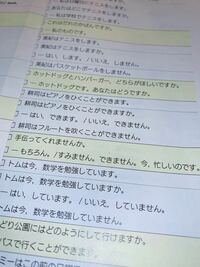 あなたはどこでテニスをしますか。
— 私は学校でテニスをします。
これはだれのかばんですか。
— 私のものです。
美紀はテニスをします。
美紀はテニスをしますか。
— はい、します。/ いいえ、しません。
美紀はバスケットボールをしません。
ホットドッグとハンバーガー、どちらがほしいですか。
— ホットドッグです。あなたはどうですか。
耕司はピアノをひくことができます。
耕司はピアノをひくことができますか。
— はい、できます。/ いいえ、できません。
耕司はフルートを吹くことができません。
手伝ってくれませんか。
— もちろん。/ すみません。できません。今、忙しいのです。
トムは今、数学を勉強しています。
トムは今、数学を勉強していますか。
— はい、しています。/ いいえ、していません。
トムは今、数学を勉強していません。
どり公園にはどのようにして行けますか。
バスで行くことができます。